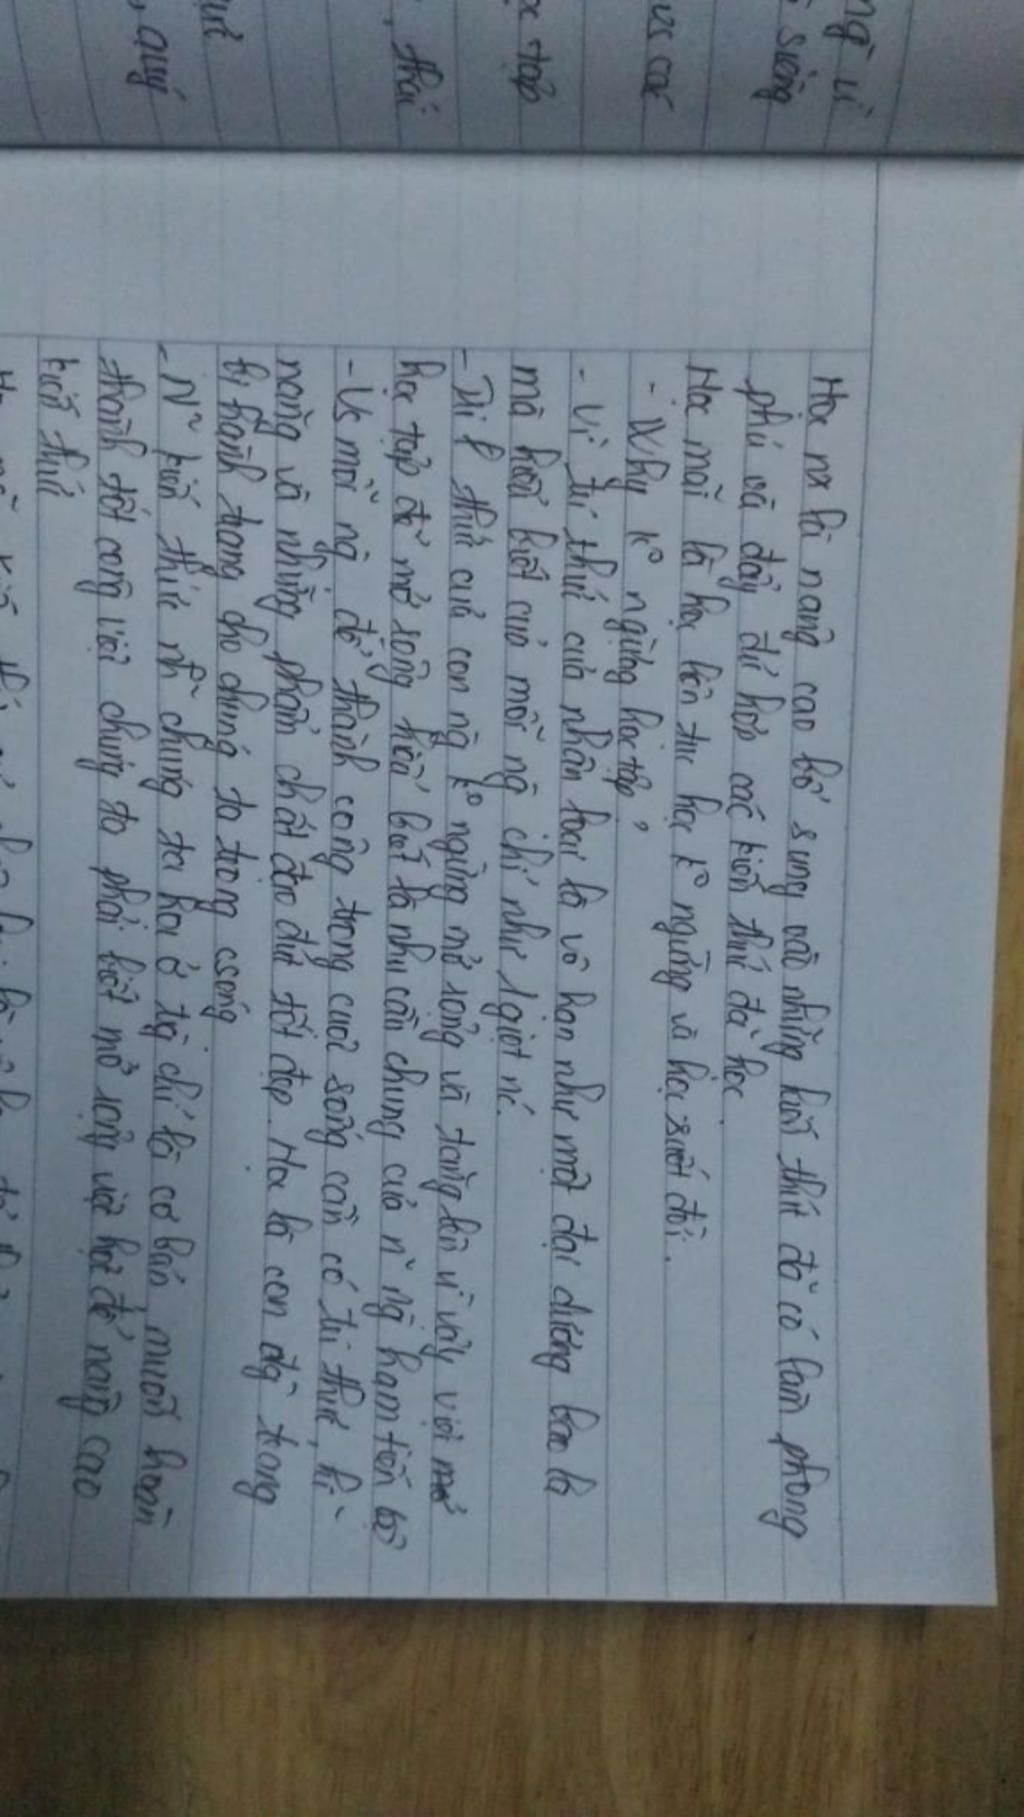 Học nx là nâng cao bổ sung vào những kiến thức đã có làm phong
phú và đầy đủ hơn các kiến thức đã học
Học mãi là học liên tục học k° ngừng và học suốt đời.
- Why k° ngừng học tập?
- Vì tri thức của nhân loại là vô hạn như một đại dương bao la
mà hiểu biết của mỗi ng chỉ như 1 giọt nc.
- thức của con ng k° ngừng mở rộng và tăng lên vì vậy với
học tập để mở rộng hiểu biết là nhu cầu chung của ng ham tiến bộ
- Vs mỗi ng để thành công trong cuộc sống cần có tri thức, kĩ
năng và những phẩm chất đạo đức tốt đẹp. Học là con đg trang
bị hành trang cho chúng ta trong csống
- N~ kiến thức chúng ta học ở tg chỉ là cơ bản muốn hoàn
thành tốt công việc chúng ta phải biết mở rộng việc học để nâng cao
kiến thức
ng vì
sống
vs các
tập
, thái
, quý